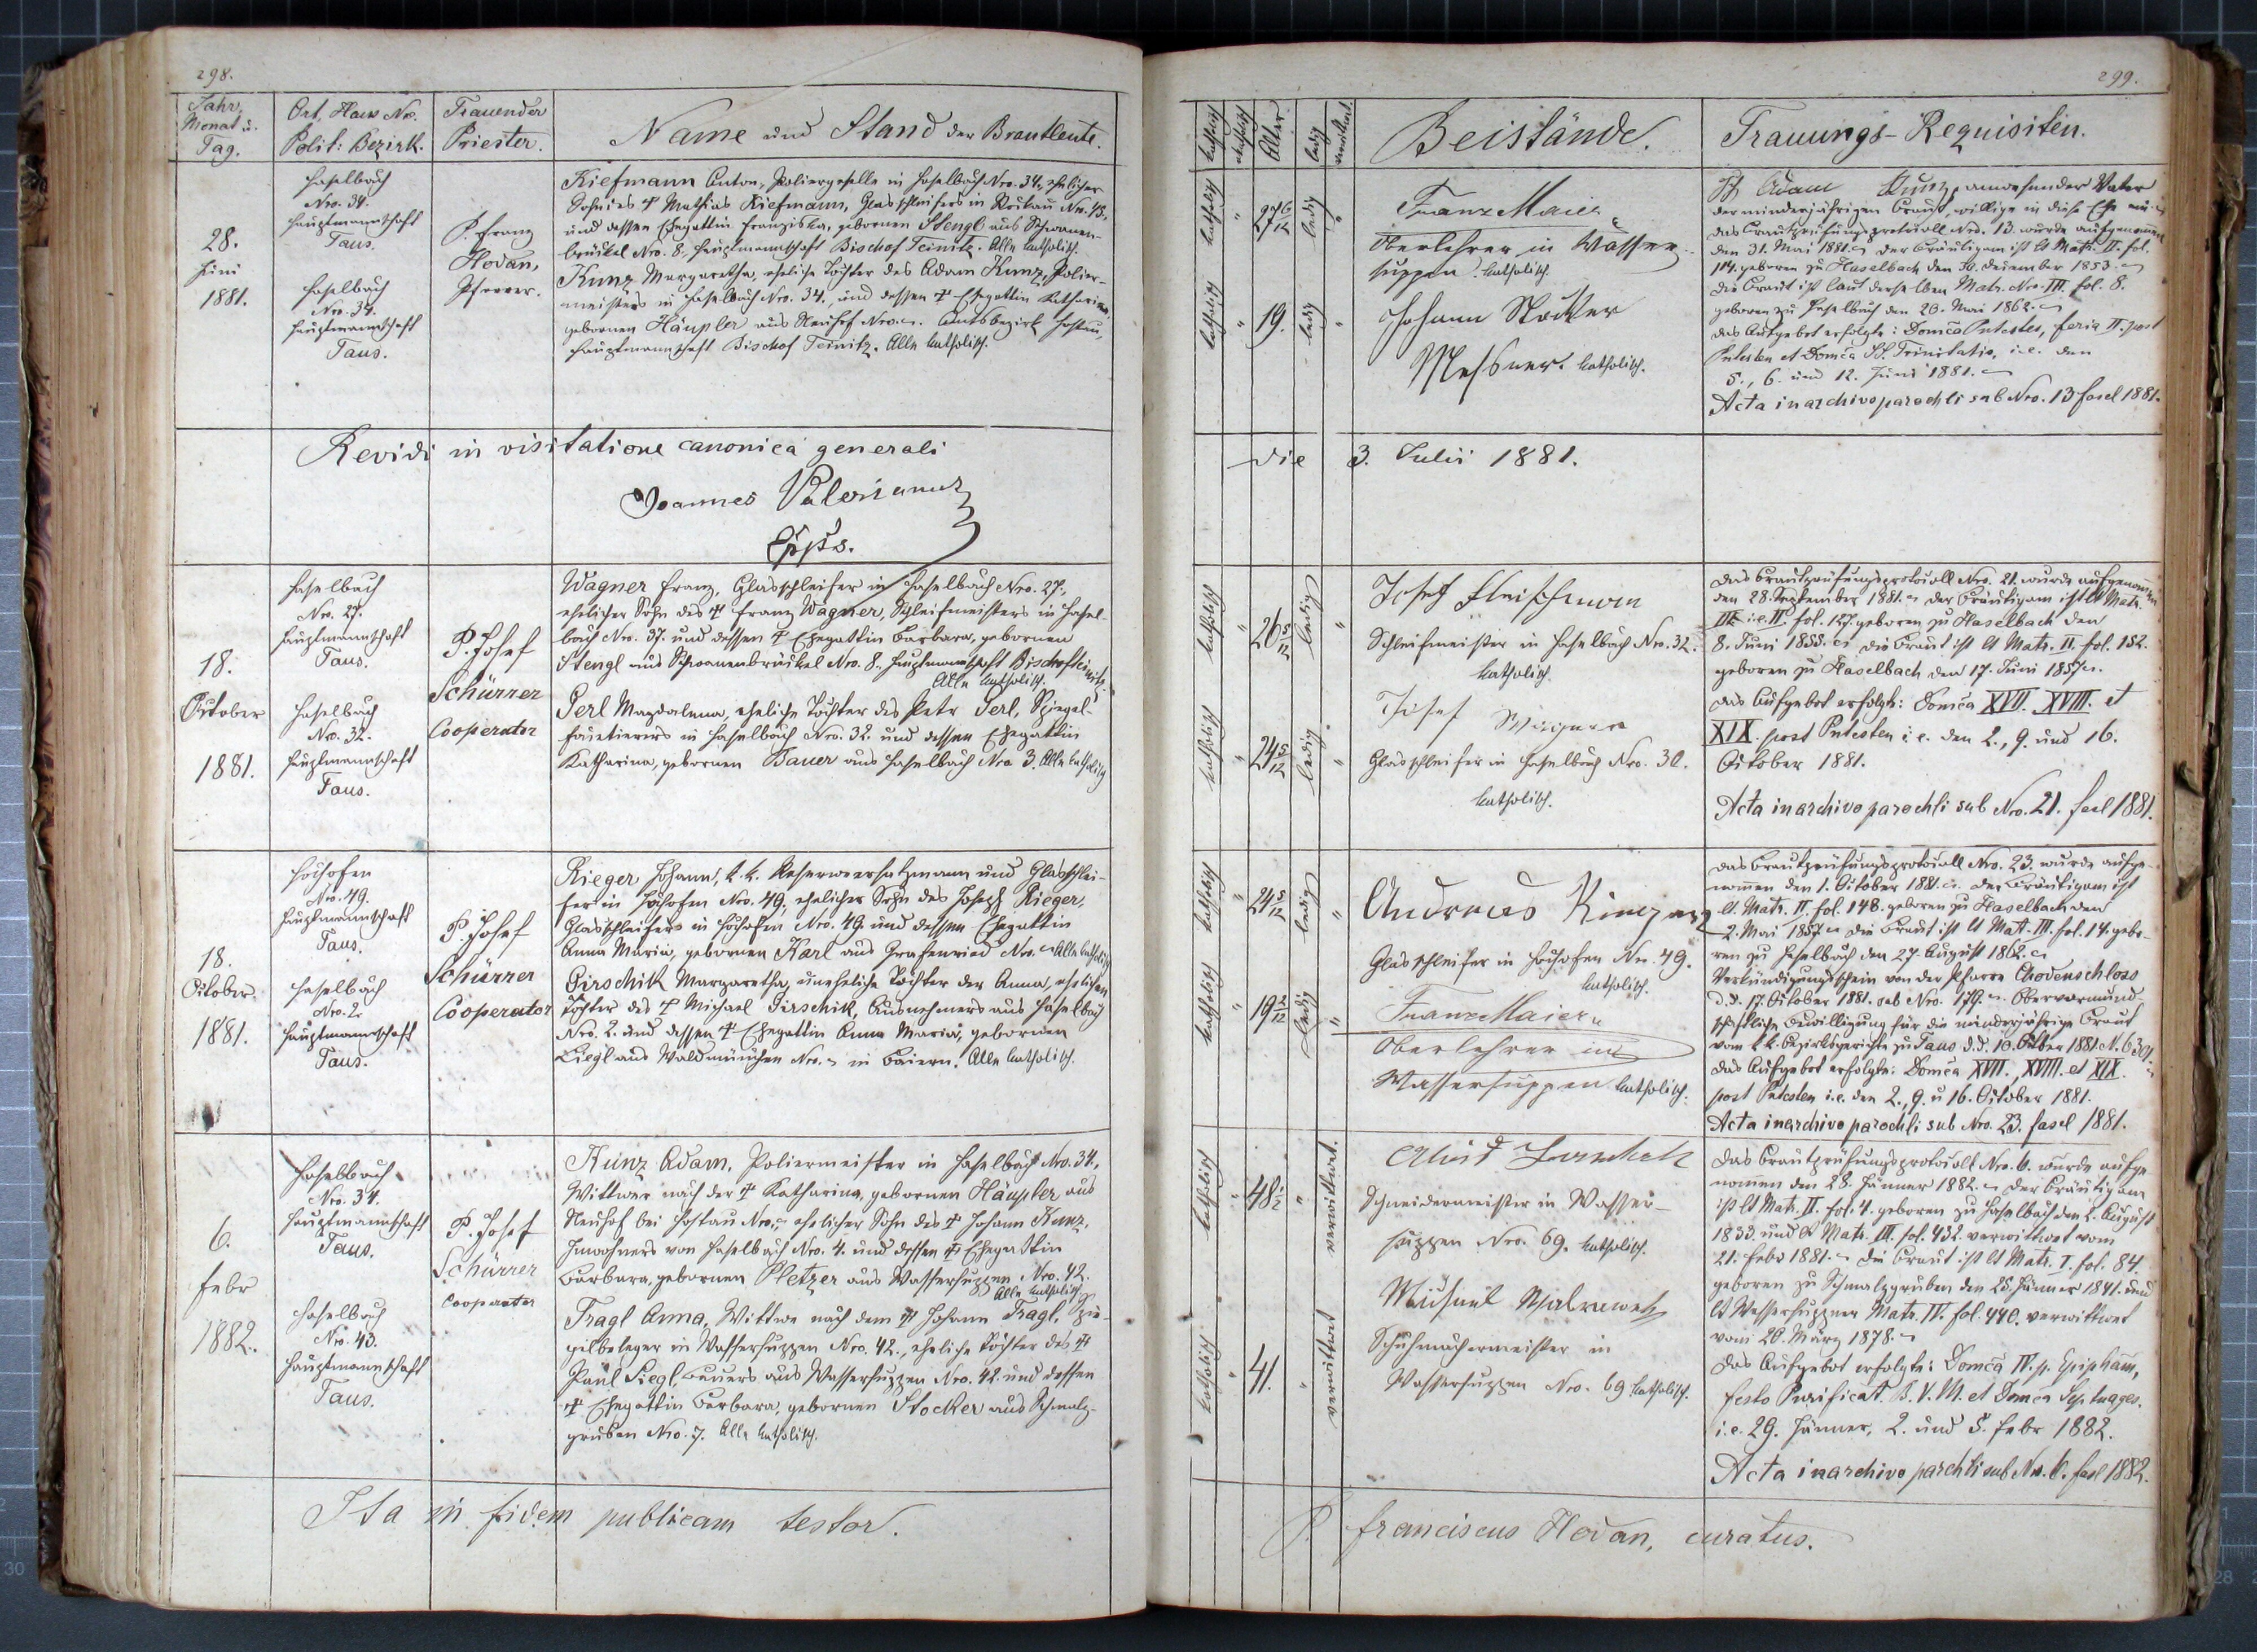 298.
Jahr, Monat u. Tag.
Ort, Haus Nro. Polit: Bezirk.
Trauender Priester.
Name und Stand der Brautleute.
28.
Juni
1881.
Haselbach
Nro. 34.
Hauptmannschaft
Taus.
Haselbach
Nro. 34.
Hauptmannschaft
Taus.
P. Franz
Hodan,
Pfarrer.
Kiefmann Anton, Poliergeselle in Haselbach Nro. 34, ehelicher
Sohn des † Mathias Kiefmann, Glasschleifers in Nro. 43,
und dessen Ehegattin Franziska, gebornen Stengl aus Schwanen-
brückel Nro. 8, Hauptmannschaft Bischof Teinitz. Alle katholisch.
Kunz Margaretha, eheliche Tochter des Adam Kunz, Polier-
meisters in Haselbach Nro. 34., und dessen † Ehegattin Katharina,
gebornen Häupler aus Neuhof Nro. Amtsbezirk Hostau,
Hauptmannschaft Bischof Teinitz. Alle katholisch.
Revidi in visitatione canonica generali
Joannes Valerianus
Eppus.
18.
October
1881.
Haselbach
Nro. 27.
Hauptmannschaft
Taus.
Haselbach
Nro. 32.
Hauptmannschaft
Taus.
P. Josef
Schürrer
Cooperator
Wagner Franz, Glasschleifer in Haselbach Nro. 27,
ehelicher Sohn des † Franz Wagner, Schleifmeisters in Hasel-
bach Nro. 37. und dessen † Ehegattin Barbara, gebornen
Stengl aus Schwanenbrückel Nro. 8., Hauptmannschaft Bischofteinitz.
Alle katholisch.
Serl Magdalena, eheliche Tochter des Peter Serl, Spiegel-
facetierers in Haselbach Nro. 32. und dessen Ehegattin
Katharina, gebornen Bauer aus Haselbach Nro 3. Alle katholisch
18.
October.
1881.
Hochofen
Nro. 49.
Hauptmannschaft
Taus.
Haselbach
Nro. 2.
Hauptmannschaft
Taus.
P. Josef
Schürrer
Cooperator
Rieger Johann, k. k. Reserveersatzmann und Glasschlei-
fer in Hochofen Nro. 49, ehelicher Sohn des Joseph Rieger,
Glasschleifers in Hochofen Nro. 49. und dessen Ehegattin
Anna Maria, gebornen Karl aus Grafenried Nro. Alle katholisch
Girschik Margaretha, uneheliche Tochter der Anna, ehelichen
Tochter des † Michael Girschik, Ausnehmers aus Haselbach
Nro. 2. und dessen † Ehegattin Anna Maria, gebornen
Liegl aus Waldmünchen Nro. in Baiern. Alle katholisch.
6.
Febr
1882.
Haselbach
Nro. 34.
Hauptmannschaft
Taus.
Haselbach
Nro. 43.
Hauptmannschaft
Taus.
P. Josef
Schürrer
Cooperator
Kunz Adam, Poliermeister in Haselbach Nro. 34,
Wittwer nach der † Katharina, gebornen Häupler aus
Neuhof bei Hostau Nro. ehelicher Sohn des † Johann Kunz,
Inwohners von Haselbach Nro. 4. und dessen † Ehegattin
Barbara, gebornen Pletzer aus Wassersuppen Nro. 42.
Alle katholisch
Tragl Anna, Wittwe nach dem † Johann Tragl,
in Wassersuppen Nro. 42., eheliche Tochter des †
Paul Siegl, Bauers aus Wassersuppen Nro. 42. und dessen
† Ehegattin Barbara, gebornen Stocker aus Schmalz-
gruben Nro. 7. Alle katholisch.
Ita in fidem publicam testor.
299.
katholisch
Alter
ledig
verwittwet
Beistände.
Trauungs-Requisiten.
katholisch " 27 6/12 ledig "
katholisch " 19. ledig "
Franz Maier
Oberlehrer in Wasser-
suppen. katholisch.
Johann Stocker
Messner. katholisch.
Ich Adam Kunz, anwesender Vater
der minderjährigen Braut, willige in diese Ehe ein.
Das Brautprüfungsprotocoll Nro. 13. wurde aufgenommen
den 31. Mai 1881. Der Bräutigam ist lt Matr. II. fol.
114. geboren zu Haselbach den 30. Dezember 1853.
Die Braut ist laut derselben Matr. Nro. III. fol. 8.
geboren zu Haselbach den 26. Mai 1862.
Das Aufgebot erfolgte: Domca Pntestes, feria II. post
Pntesten et Domca SS. Trinitatis, i.e. den
5., 6. und 12. Juni 1881.
Acta in archivo parochli sub Nro. 13 fascl 1881.
die 3. Julii 1881.
katholisch " 26 5/12 ledig "
katholisch " 24 5/12 ledig "
Josef Fleischmann
Schleifmeister in Haselbach Nro. 32.
katholisch.
Josef Wagner
Glasschleifer in Haselbach Nro. 30.
katholisch.
Das Brautprüfungsprotocoll Nro. 21. wurde aufgenommen
den 28. September 1881. Der Bräutigam ist lt Matr.
i.e. II. fol. 127. geboren zu Haselbach den
8. Juni 1855. Die Braut ist lt Matr. II. fol. 152.
geboren zu Haselbach den 17. Juni 1857.
Das Aufgebot erfolgte: Domca XVII. XVIII. et
XIX. post Pntesten i.e. den 2., 9. und 16.
October 1881.
Acta in archivo parochli sub Nro. 21. fascl 1881.
katholisch " 24 5/12 ledig "
katholisch " 19 2/12 ledig "
Andreas
Glasschleifer in Hochofen Nro. 49.
katholisch.
Franz Maier
Oberlehrer in
Wassersuppen katholisch.
Das Brautprüfungsprotocoll Nro. 23. wurde aufge-
nommen den 1. October 1881. Der Bräutigam ist
lt. Matr. II. fol. 148. geboren zu Haselbach den
2. Mai 1857. Die Braut ist lt Mat. III. fol. 14. gebo-
ren zu Haselbach den 27. August 1862.
Verkündigungsschein von der Pfarre Chodenschloss
d.d. 17. October 1881. sub Nro. 179. Obervormund-
schaftliche Bewilligung für die minderjährige Braut
vom k.k. Bezirksgerichte zu Taus d.d. 10. October 1881. N. 6301.
Das Aufgebot erfolgte: Domca XVII., XVIII. et XIX.
post Pntesten i.e. den 2., 9. u 16. October 1881.
Acta in archivo parochli sub Nro. 23. fascl 1881.
katholisch " 48 " verwittwet.
katholisch " 41. " verwittwet
Schneidermeister in Wasser-
suppen Nro. 69. katholisch.
Schuhmachermeister in
Wassersuppen Nro. 69 katholisch.
Das Brautprüfungsprotocoll Nro. 6. wurde aufge
nommen den 28. Jänner 1882. Der Bräutigam
ist lt Matr. II. fol. 4. geboren zu Haselbach den 2. August
1833. und lt Matr. III. fol. 432. verwittwet vom
21. Febr 1881. Die Braut ist lt Matr. I. fol. 84.
geboren zu Schmalzgruben den 25. Jänner 1841. und
lt Wassersuppner Matr. IV. fol. 440. verwittwet
vom 20. März 1878.
Das Aufgebot erfolgte: Domca IV. p. Epipham,
festo Purificat. B. V. M. et Domca Septuages.
i. e. 29. Jänner, 2. und 5. Febr 1882.
Acta in archivo parchli sub Nro. 6. fascl 1882.
P. Franciscus Hodan, curatus.